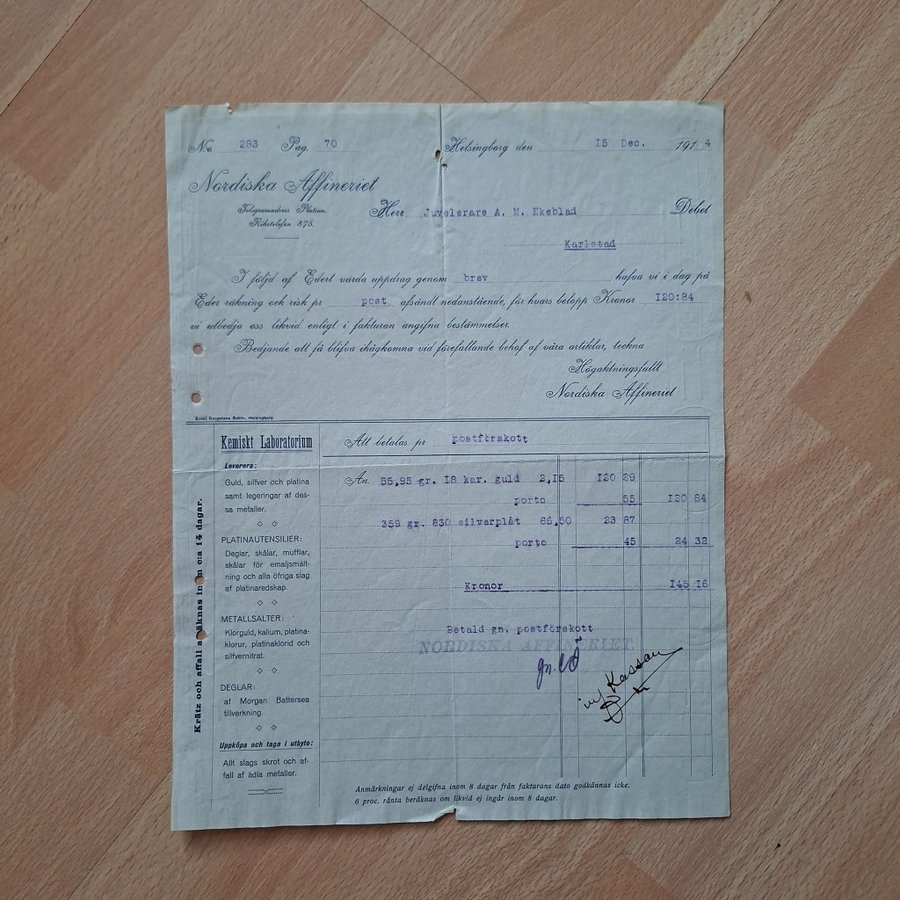 No 283 Pag. 70 Helsingborg den 15 Dec. 1914
Nordiska Affineriet
Telegramadress Platina.
Rikstelefon 875.
Herr Juvelerare A. M. Ekeblad Debet
Karlstad
I följd af Edert värda uppdrag genom brev hafva vi i dag på
Eder räkning och risk pr post afsändt nedanstående, för hvars belopp Kronor 120:84
vi utbedja oss likvid enligt i fakturan angifna bestämmelser.
Bedjande att få blifva ihågkomna vid förefallande behof af våra artiklar, teckna
Högaktningsfullt
Nordiska Affineriet
Helsingborg.
Kemiskt Laboratorium
Att betalas pr postförskott
Leverera:
Guld, silfver och platina
samt legeringar af des-
sa metaller.
PLATINAUTENSILIER:
Deglar, skålar, mufflar,
skålar för emaljsmält-
ning och alla öfriga slag
af platinaredskap.
METALLSALTER:
Klorguld, kalium, platina-
klorur, platinaklorid och
silfvernitrat.
DEGLAR:
af Morgan Battersea
tillverkning.
Uppköpa och taga i utbyte:
Allt slags skrot och af-
fall af ädla metaller.
Krätz och affall aräknas inom c:a 14 dagar.
An. 55,95 gr. 18 kar. guld 2,15 120 29
porto 55 120 84
359 gr. 830 silverplåt 66,50 23 87
porto 45 24 32
Kronor 145 16
Betald gn. postförskott
NORDISKA AFFINERIET
Kassan
Anmärkningar ej delgifna inom 8 dagar från fakturans dato godkännas icke.
6 proc. ränta beräknas om likvid ej ingår inom 8 dagar.